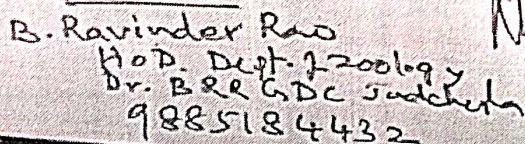 B. Ravinder Rao
HoD. Dept. of Zoology
Dr. BRR GDC Jadcherla
9885184432